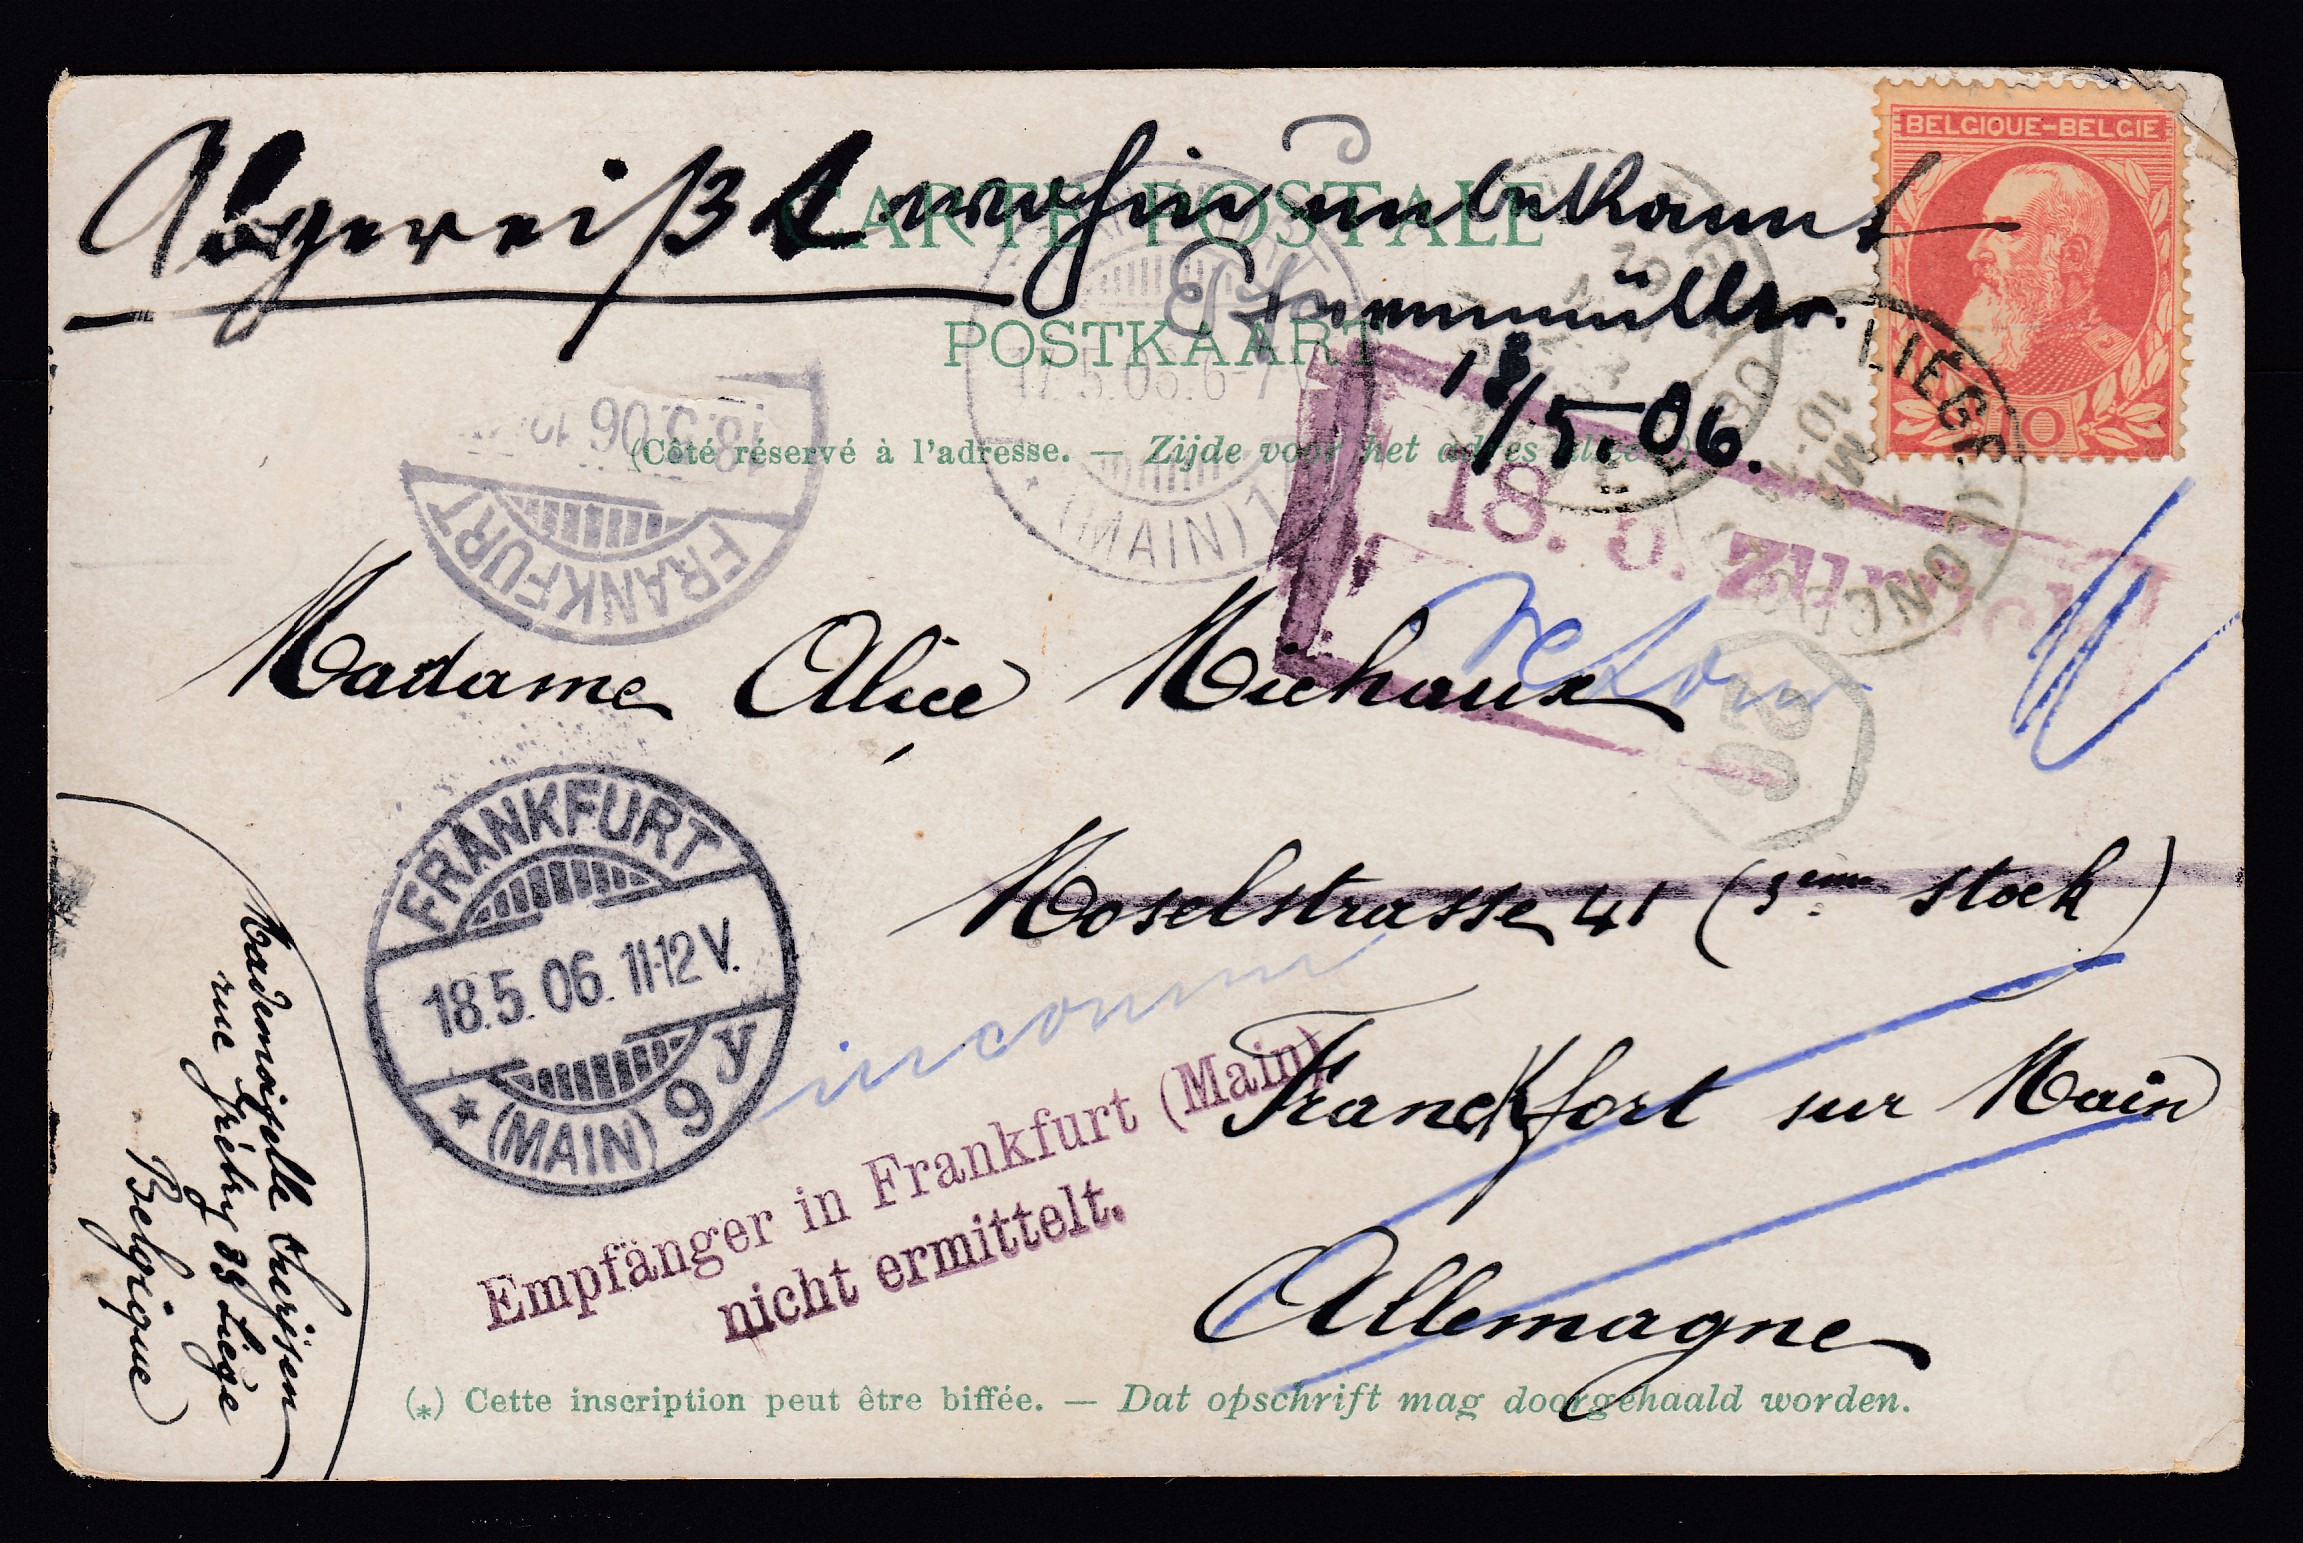 BELGIQUE-BELGIE
10
CARTE POSTALE
POSTKAART
(Côté réservé à l'adresse. — Zijde voor het adres
Abgereißt wohin unbekannt
18/5.06.
17.5.06.6-7
(MAIN) 1
18.5.06
FRANKFURT
LIÉGE (LONGDOZ)
18. 5. Zurück
retour
Madame Alice Michaux
Moselstrasse 41 (3ème stock)
Franckfort sur Main
Allemagne
FRANKFURT
18.5.06.11-12V.
* (MAIN) 9 y
inconnu
Empfänger in Frankfurt (Main)
nicht ermittelt.
Mademoiselle
rue Grétry 89 Liége
Belgique
(*) Cette inscription peut être biffée. — Dat opschrift mag doorgehaald worden.